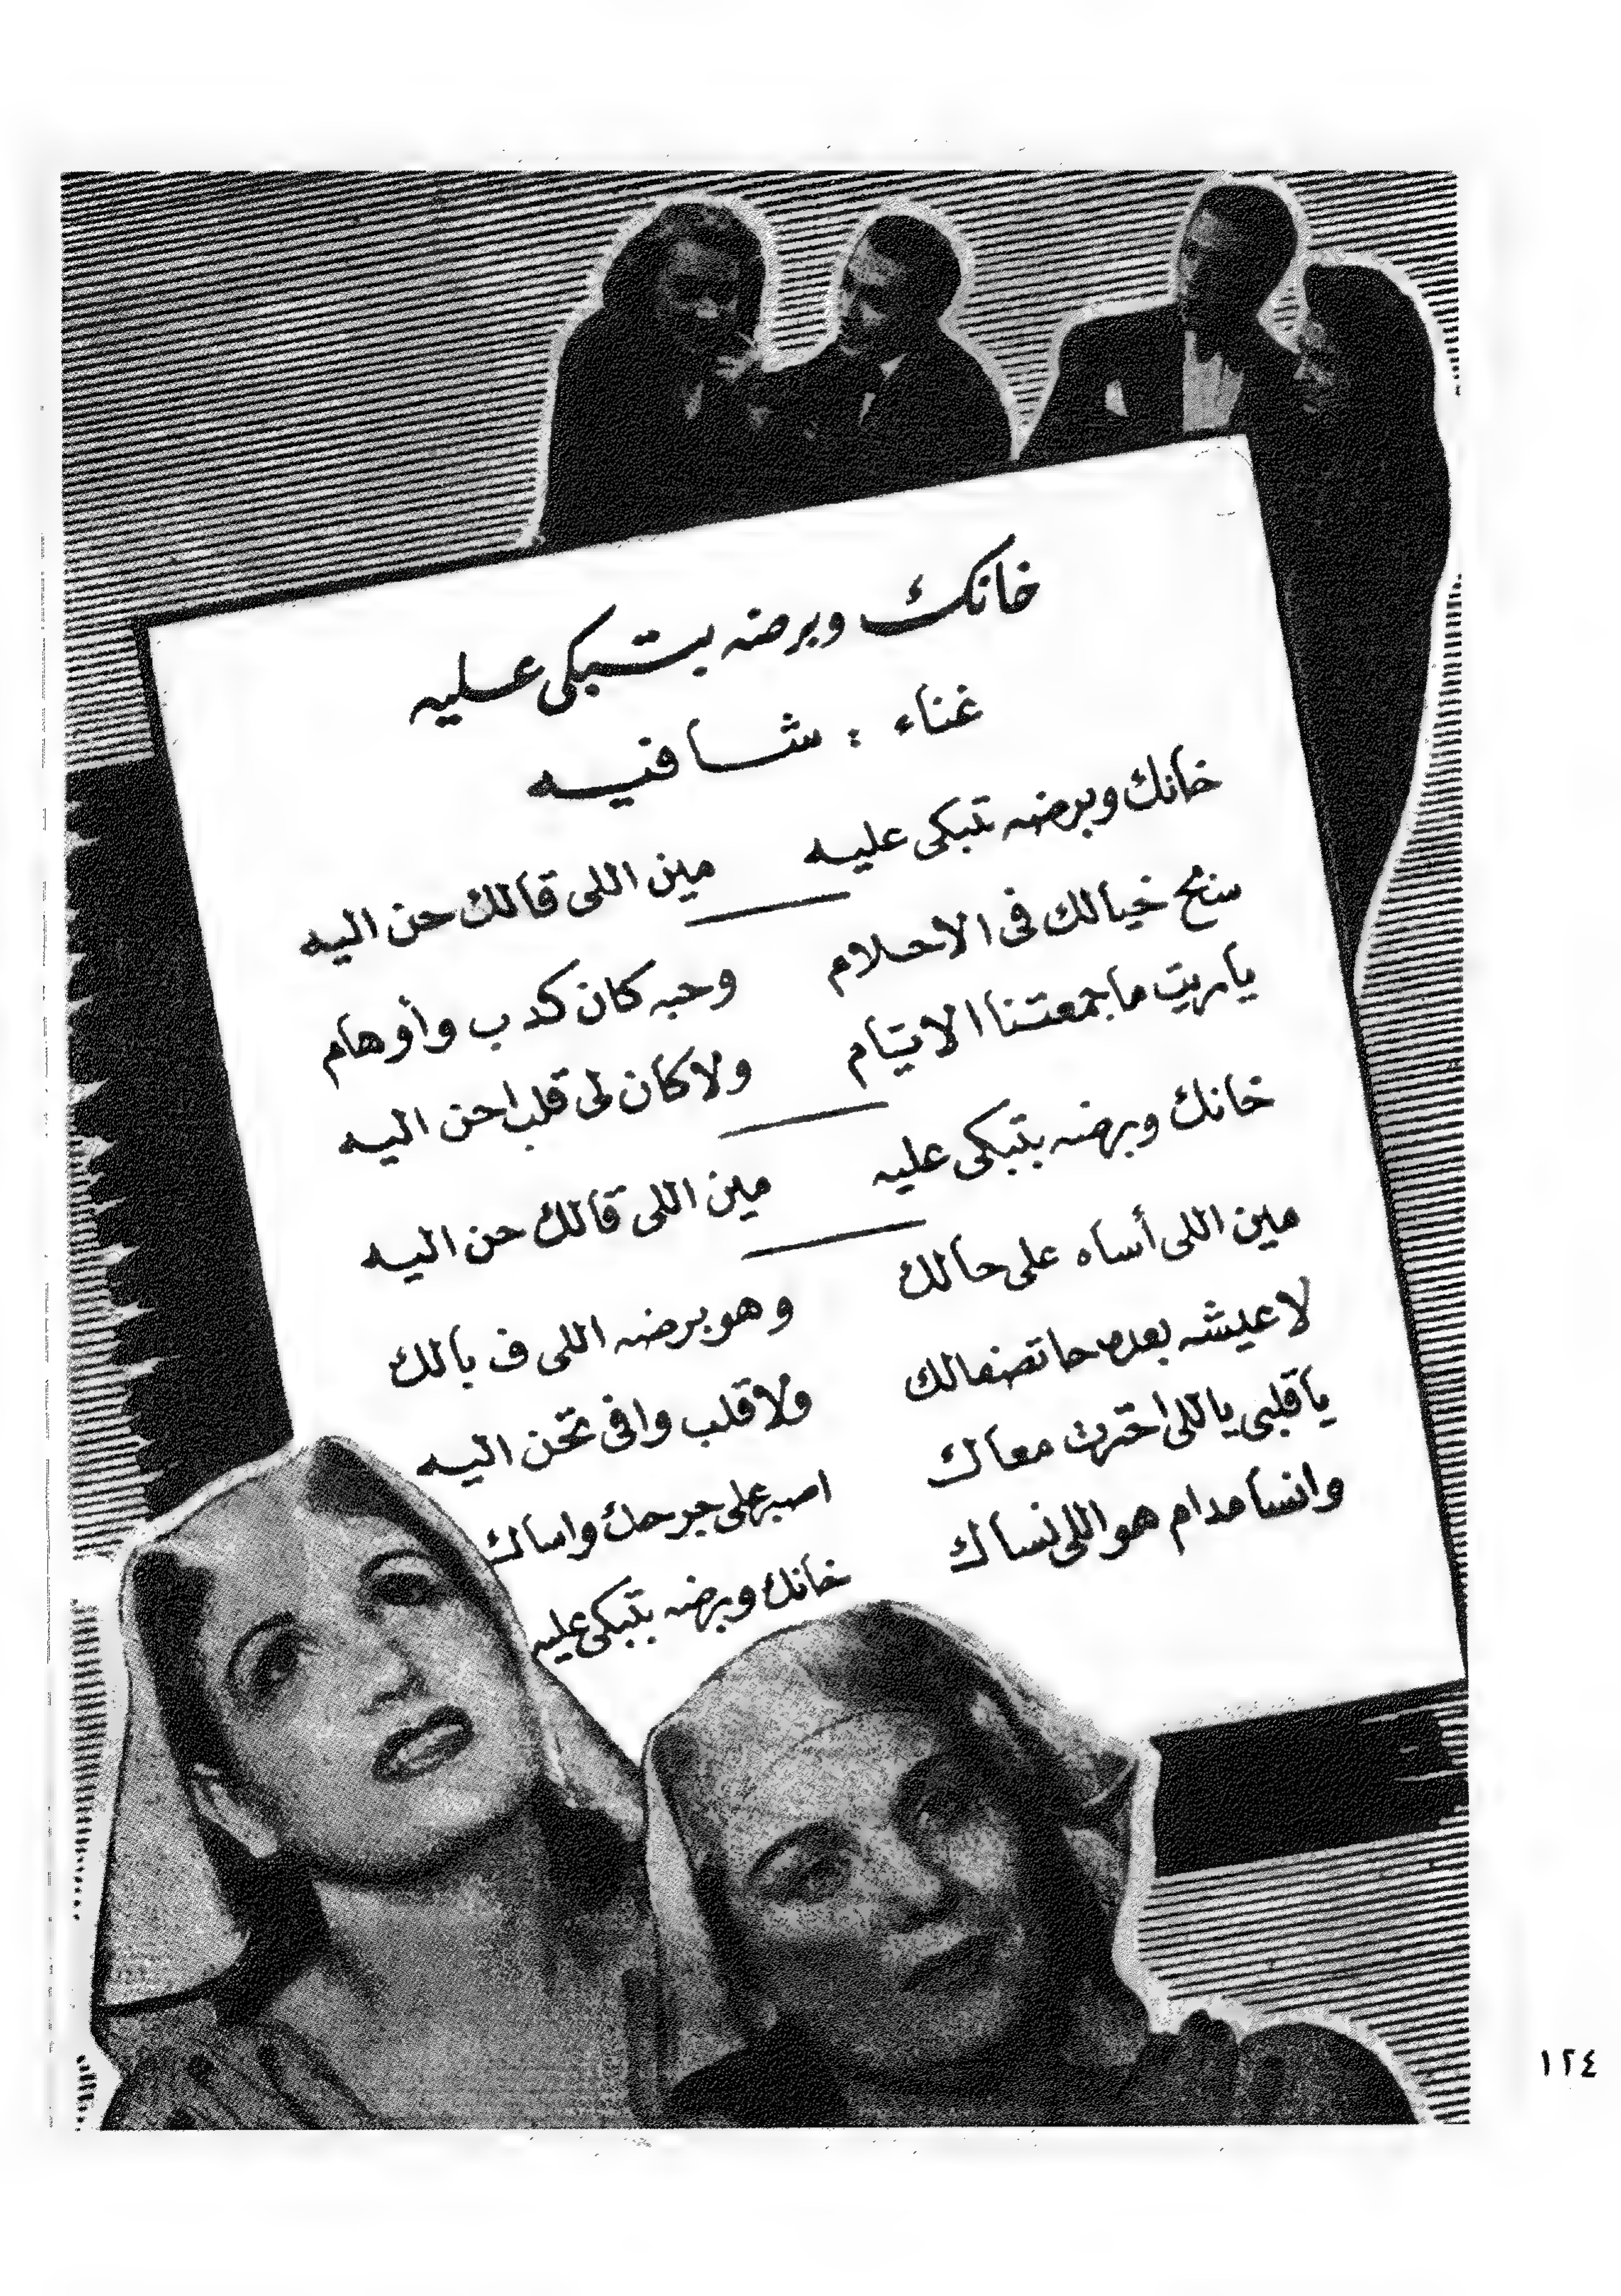 خانك وبرضه بتبكى عليه
غناء : شافيه
خانك وبرضه تبكى عليه مين اللى قالك حن اليه
سنح خيالك فى الاحلام وحبه كان كدب وأوهام
ياريت ماجمعتنا الايام ولا كان لى قلب احن اليه
خانك وبرضه بتبكى عليه مين اللى قالك حن اليه
مين اللى أساه على حالك وهو برضه اللى ف بالك
لا عيشه بعده حاتصفالك ولا قلب وافى تحن اليه
ياقلبى ياللى احترت معاك اصبر على جرحك واساك
وانسا مدام هو اللى نساك خانك وبرضه بتبكى عليه
١٢٤